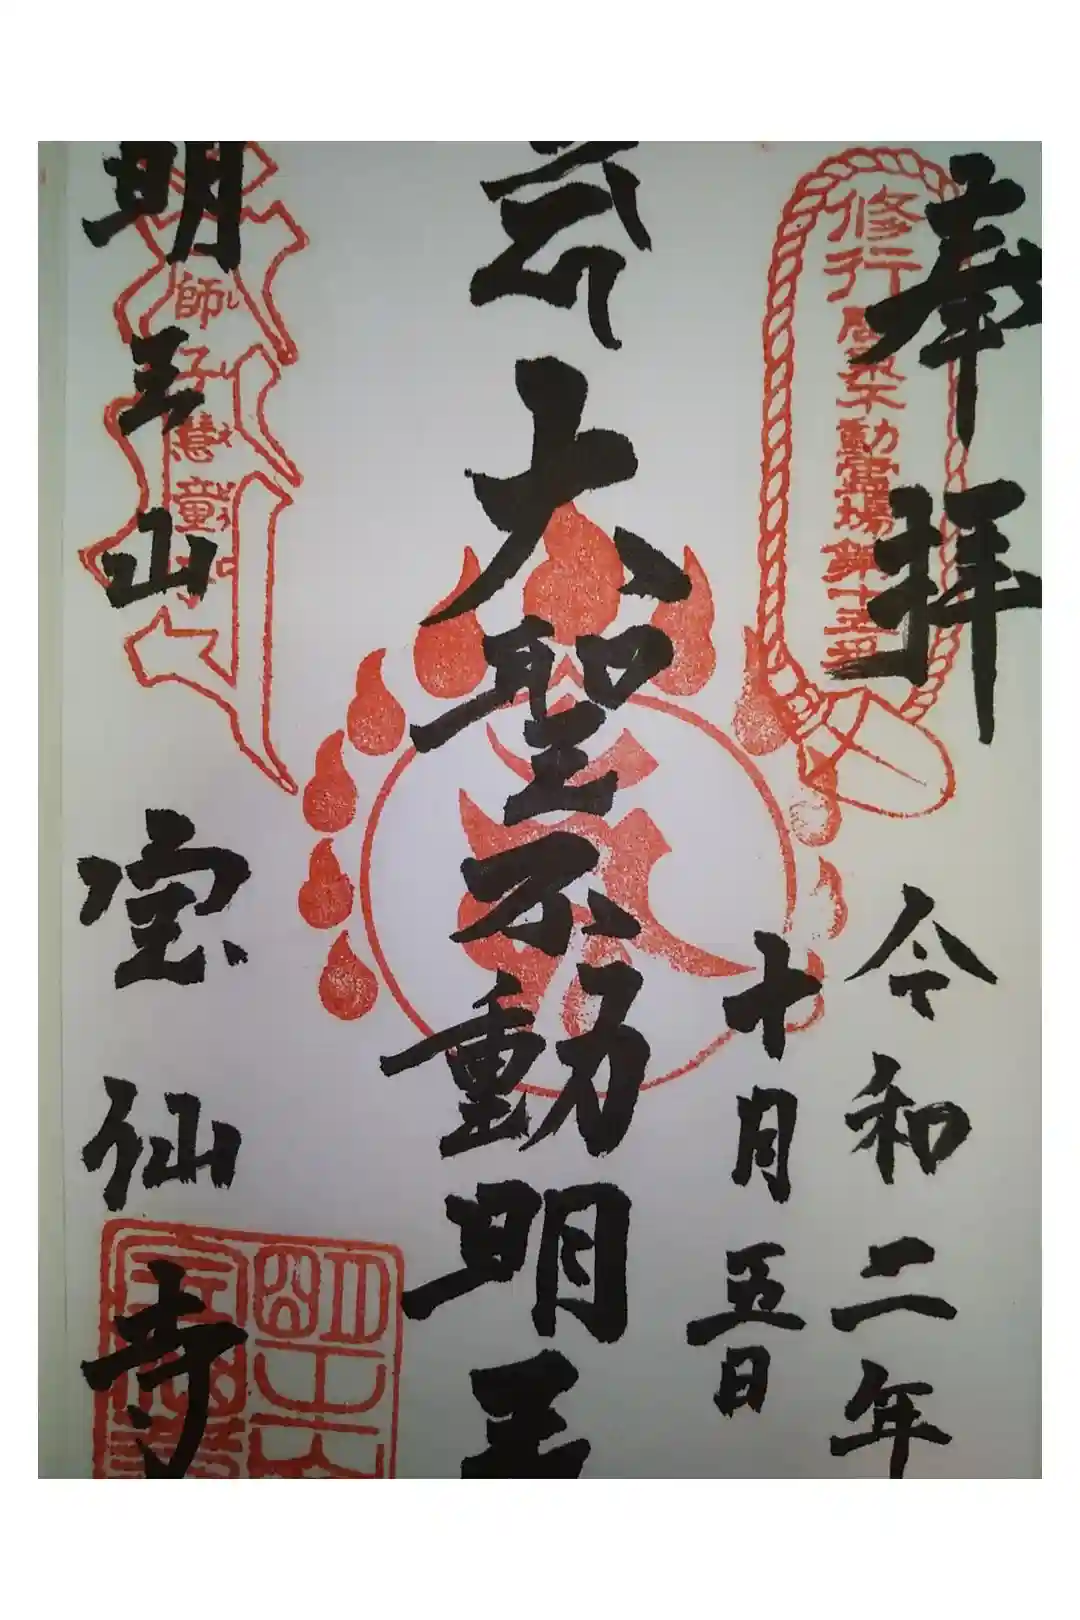 奉拝
修行
関東不動霊場第十五番
令和二年
十月五日
大聖不動明王
明王山
師子慧童
宝仙寺